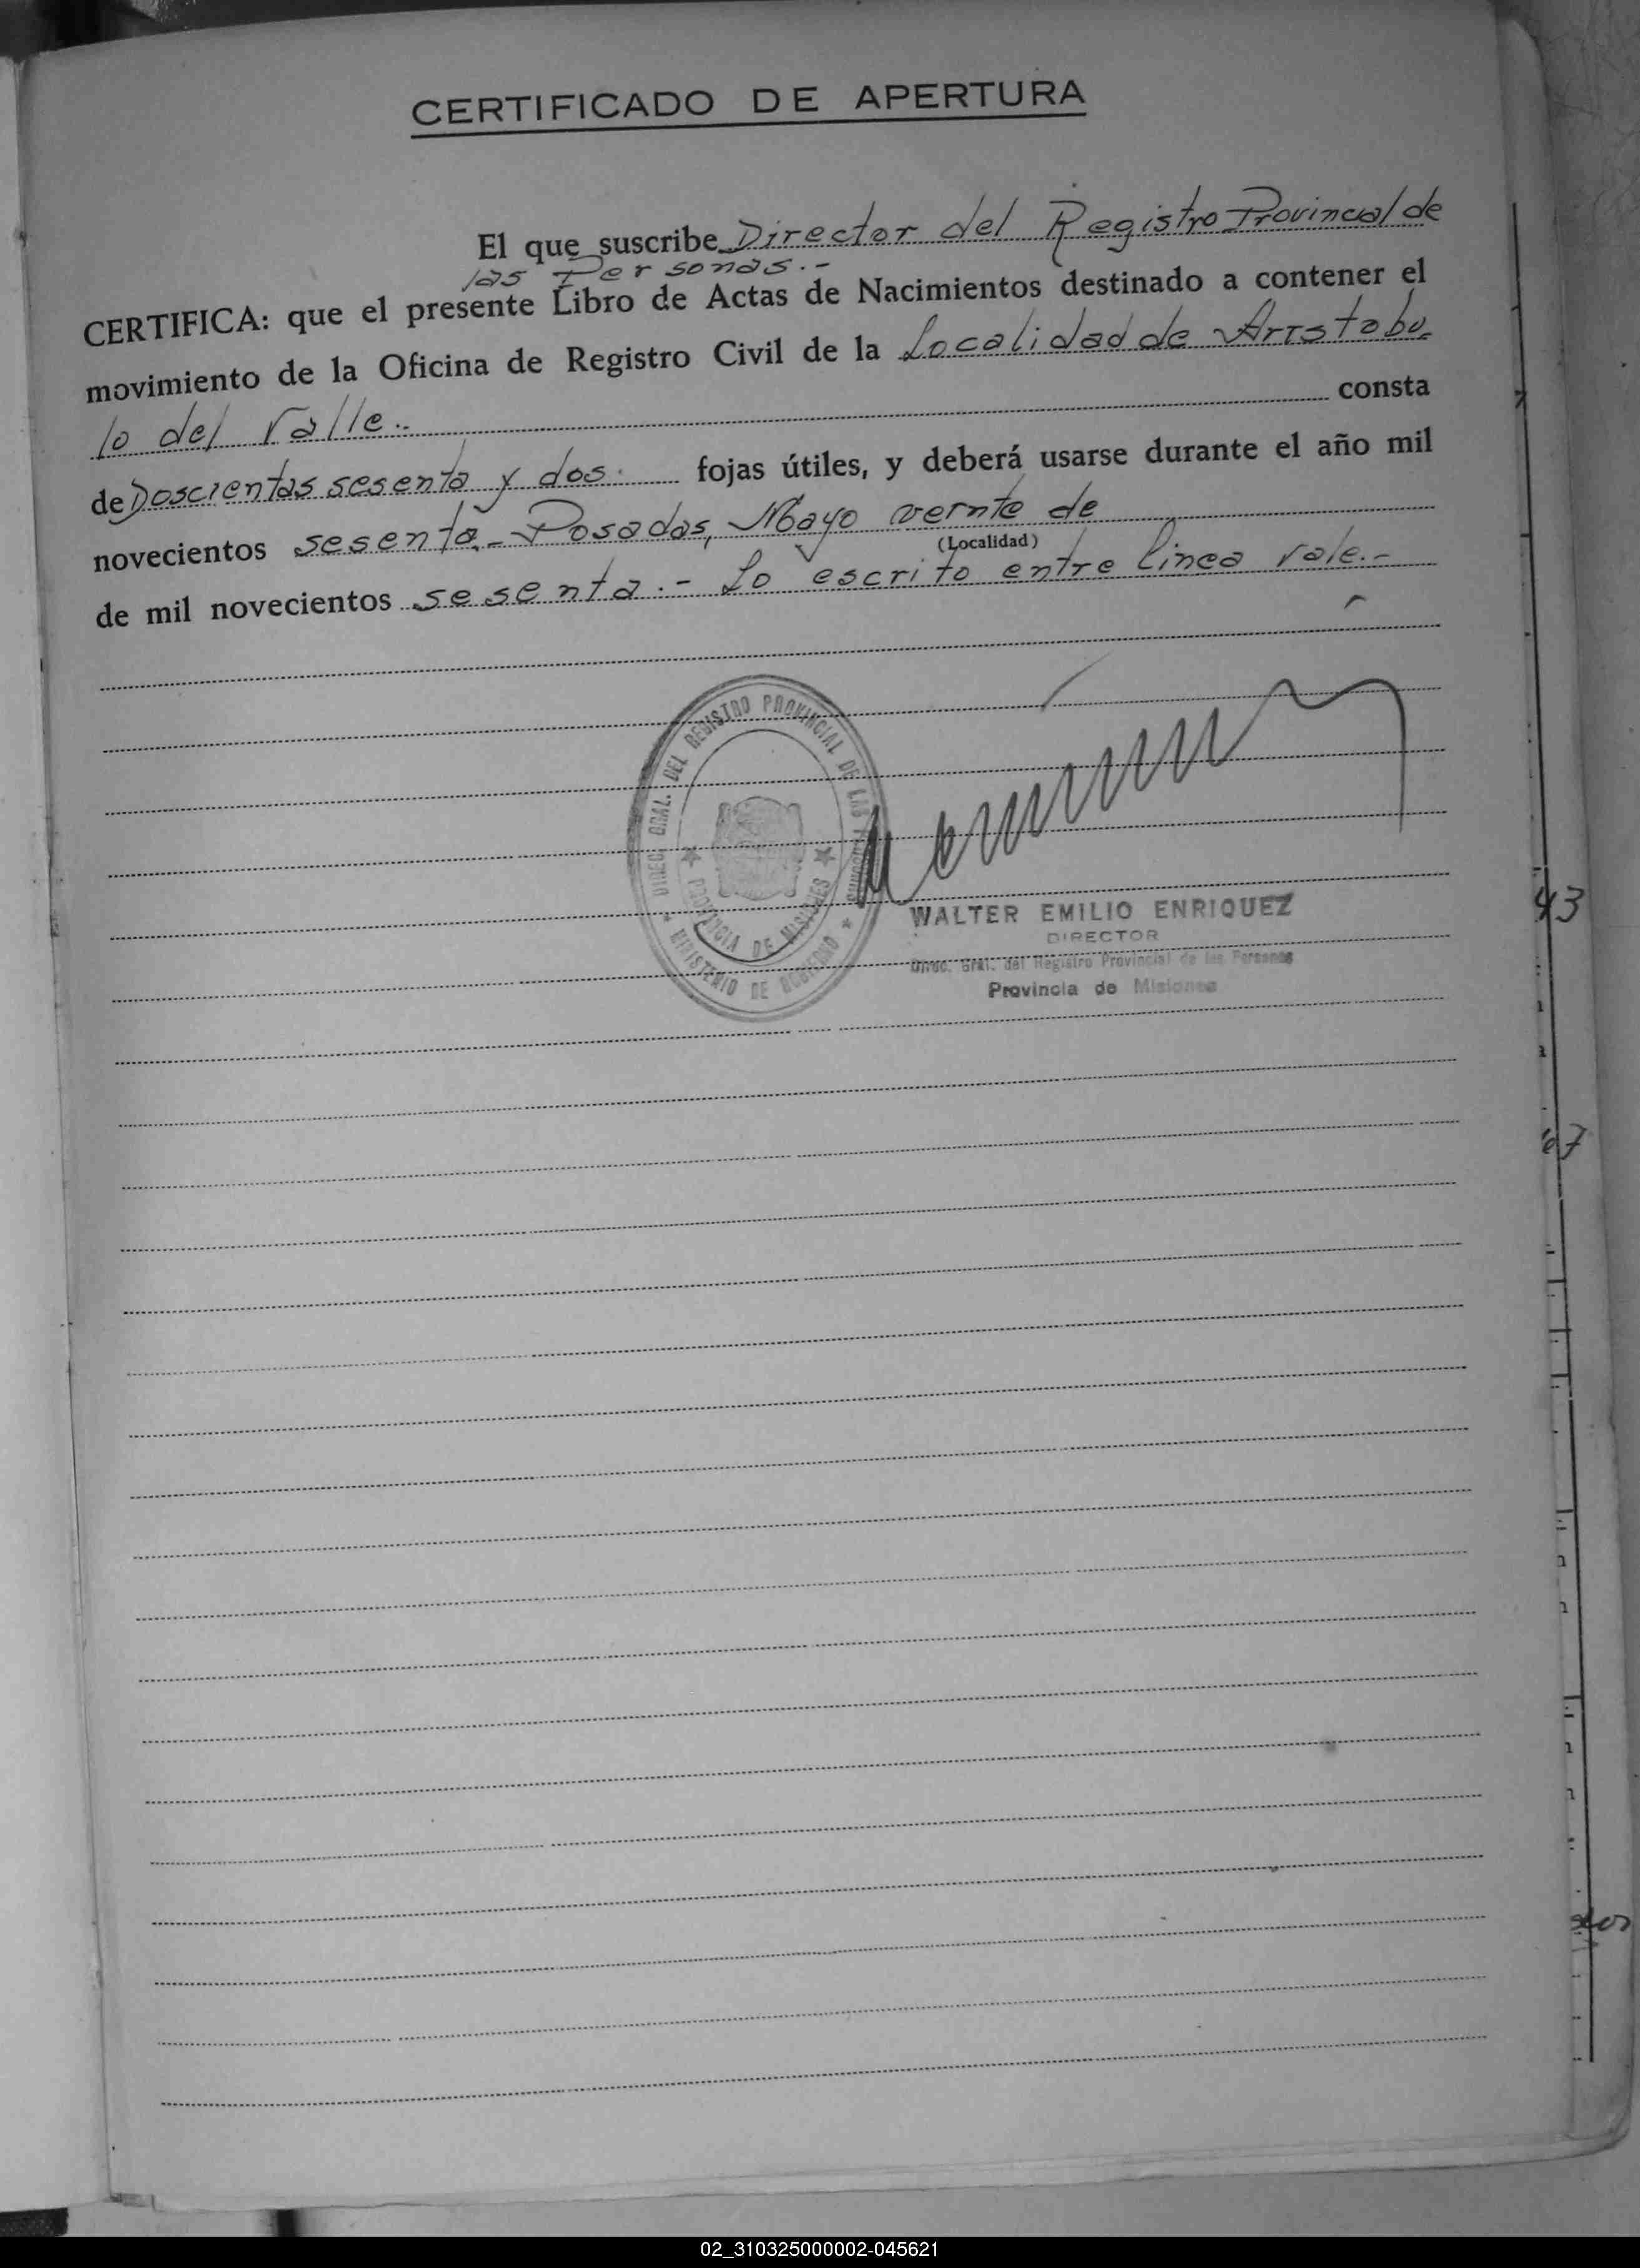 CERTIFICADO DE APERTURA
El que suscribe Director del Registro Provincial de
las Personas.-
CERTIFICA: que el presente Libro de Actas de Nacimientos destinado a contener el
movimiento de la Oficina de Registro Civil de la Localidad de Aristobu
lo del Valle.- consta
de Doscientas sesenta y dos. fojas útiles, y deberá usarse durante el año mil
novecientos sesenta.- Posadas, Mayo veinte de
(Localidad)
de mil novecientos sesenta.- Lo escrito entre linea vale.-
DIREC. GRAL. DEL REGISTRO PROVINCIAL DE LAS PERSONAS
PROVINCIA DE MISIONES
MINISTERIO DE GOBIERNO
WALTER EMILIO ENRIQUEZ
DIRECTOR
Direc. Gral. del Registro Provincial de las Personas
Provincia de Misiones
43
67
02_310325000002-045621